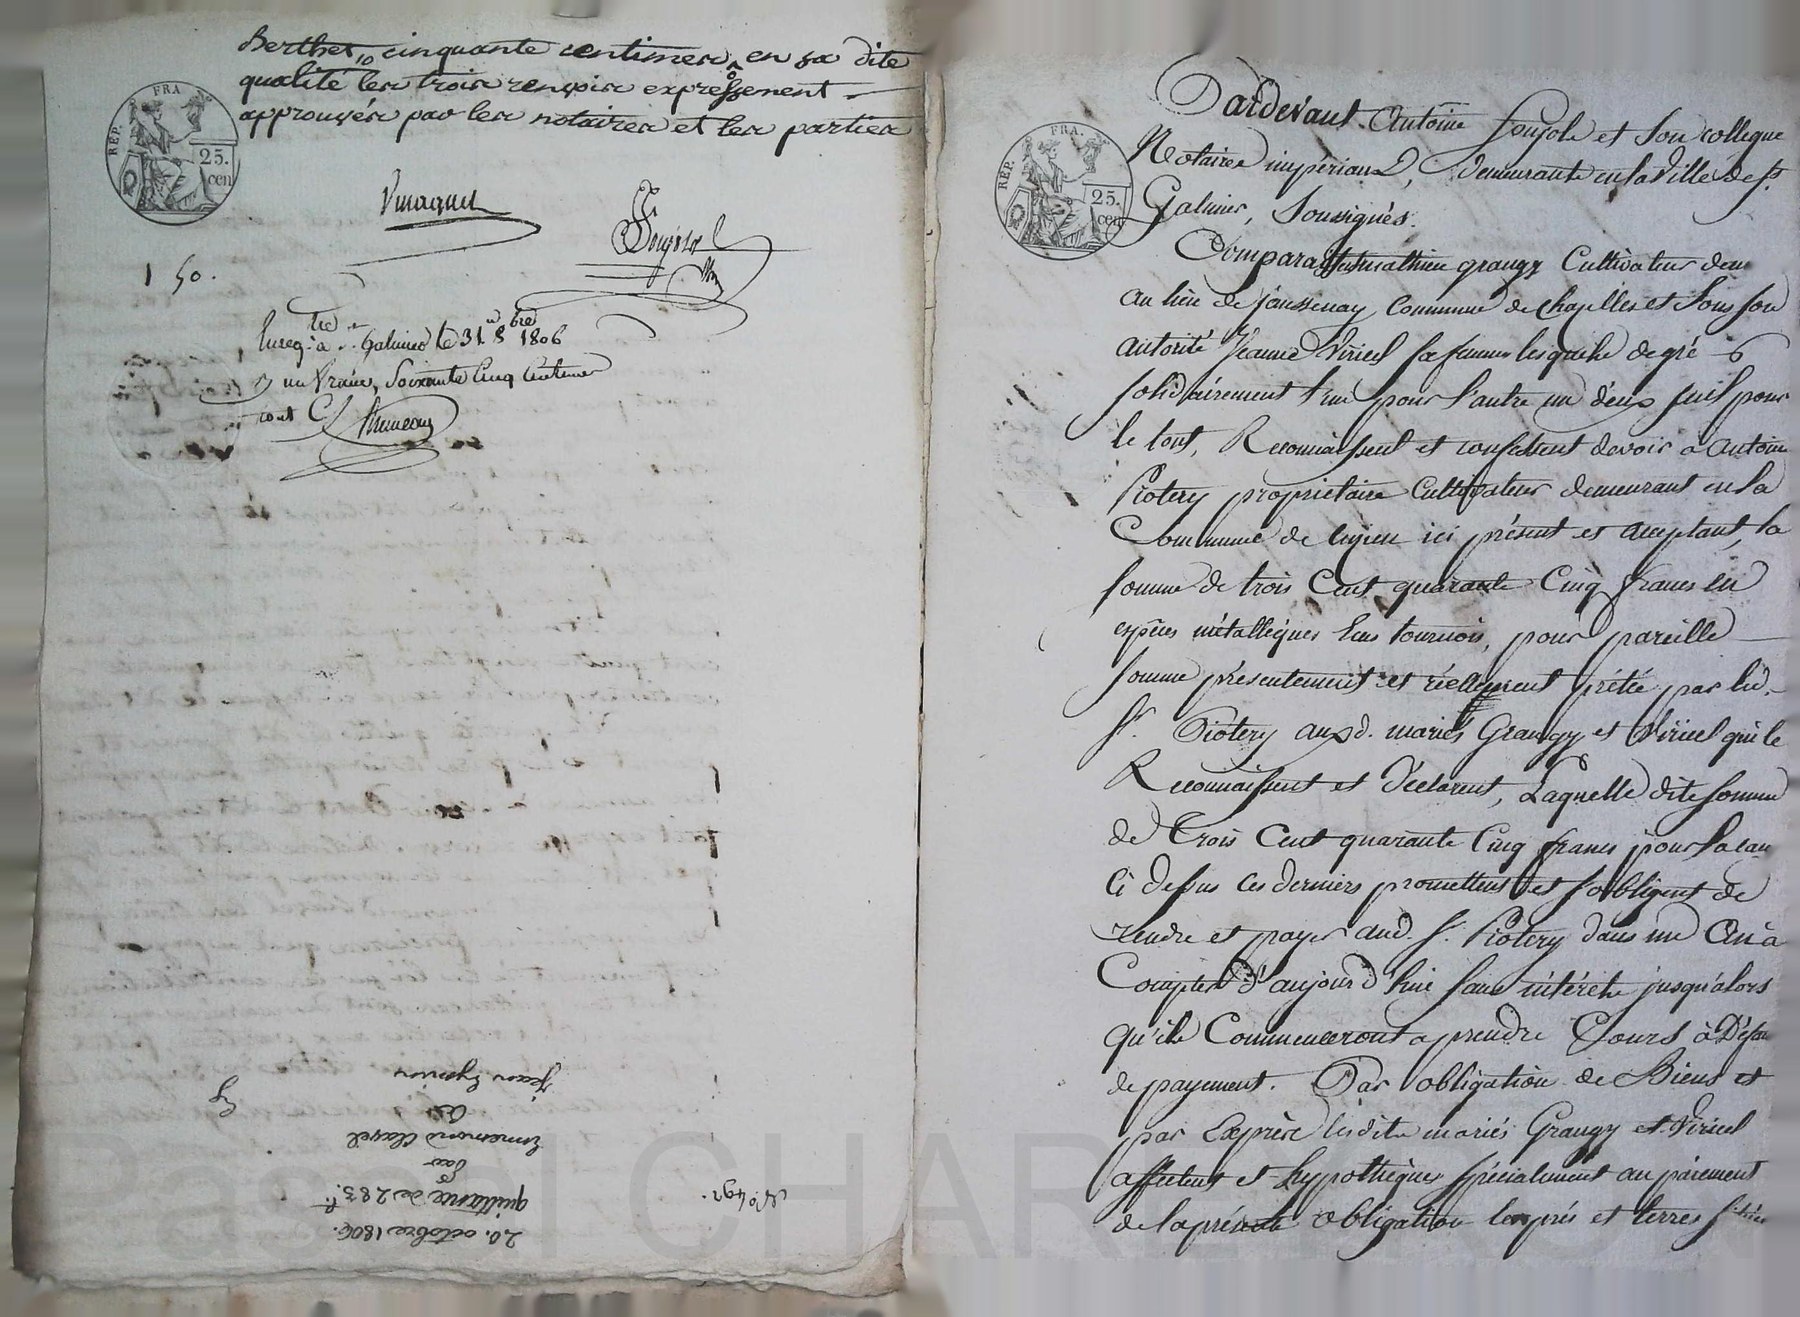 Berthet, cinquante centimes en sa dite
qualité les trois renvois expressément
approuvés par les notaires et les parties
REP. FRA
25.
cen
1 50.
Enreg. à St Galmier le 31 8bre 1806
un franc, soixante cinq centimes
20. octobre 1806.
quittance de 283. f.
par
Ennemond Clavel
à
Jean
N.º 492.
Pardevant Antoine Soujole et son collegue
Notaires imperiaux, demeurants en la Ville de St.
Galmier, Soussignés.
REP. FRA.
25.
cen
Comparants mathieu grangy Cultivateur dem
au lieu de jaussenay, Commune de Chazelles et Sous son
autorité Jeanne Viricel sa femme lesquels de gré &
solidairement l'un pour l'autre un d'eux seul pour
le tout, Reconnaissent et confessent devoir à antoine
Piotery propriétaire Cultivateur demeurant en la
Commune de ici présent et acceptant, la
somme de trois Cent quarante Cinq francs en
espèces métalliques tournois, pour pareille
somme présentement et réellement prêtée par led.
Sr. Piotery aux d. mariés Grangy et Viricel qui le
Reconnaissent et Déclarent, Laquelle dite somme
de Trois Cent quarante Cinq francs pour la cau
ci dessus ces derniers promettent et s'obligent de
rendre et payer aud. Sr. Piotery dans un An à
Compter d'aujourd'hui sans intérêts jusqu'alors
qu'ils Commenceront a prendre Cours à Défau
de payement. Par obligation de Biens et
par Exprès lesdits mariés Grangy et Viricel
affectent et hypothèques spécialement au paiement
de la présente obligation les prés et terres situés
Pascal CHARLETRON